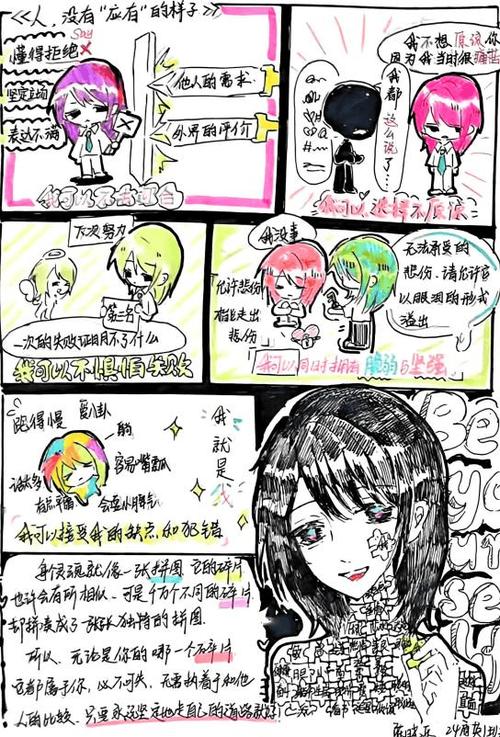 <<人，没有“应有”的样子>>
Say
懂得拒绝
坚定立场
表达不满
他人的需求
外界的评价
我可以不去迎合
我不想原谅你
因为我当时很痛
我都
这么
说了…
我可以选择不原谅
下次努力
第二名
一次的失败证明不了什么
我可以不惧怕失败
我没事
允许悲伤
才能走出
悲伤
无法承受的
悲伤，请允许它
以眼泪的形式
溢出
我可以同时拥有脆弱与坚强
跑得慢
八卦
的
容易嘴瓢
话太多
会耍小脾气
我可以接受我的缺点和犯错
我
就
是
我
Be
yo
ur
se
lf
每个灵魂就像一张拼图，它的碎片
也许会有所相似，可是千万个不同的碎片
却拼凑成了一张张独特的拼图
所以，无论是你的哪一个碎片
它都属于你，必不可失，无需执着于和他
人的比较，只要永远坚定地走自己的道路就好